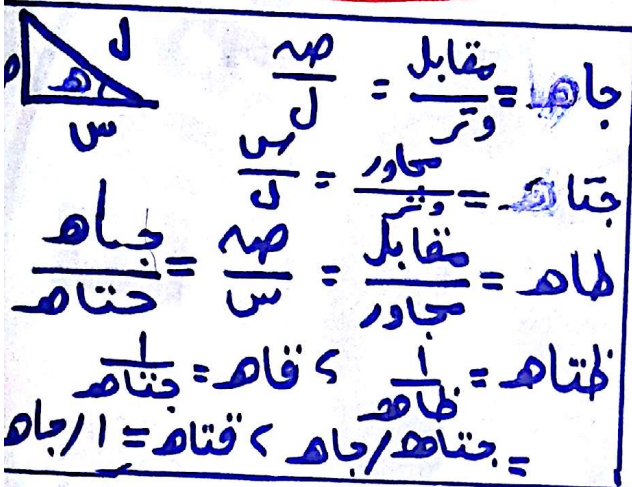 ل
هـ
س
جاهـ = مقابل / وتر = صـ / ل
جتاهـ = مجاور / وتر = س / ل
ظاهـ = مقابل / مجاور = صـ / س = جاهـ / جتاهـ
ظتاهـ = ١ / ظاهـ ، قاهـ = ١ / جتاهـ
= جتاهـ/جاهـ ، قتاهـ = ١/جاهـ